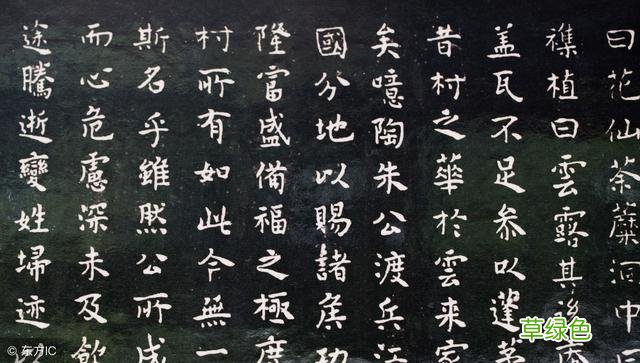 曰花仙荼蘼洞中
襍植曰雲露其後
盖瓦不足参以蓬茅
昔村之華於雲来
矣噫陶朱公渡兵江
國分地以賜諸侯功
隆富盛備福之極
村所有如此今無一
斯名乎雖然公所成
而心危慮深未及飲
途騰逝變姓埽迹
草绿色
© 东方IC